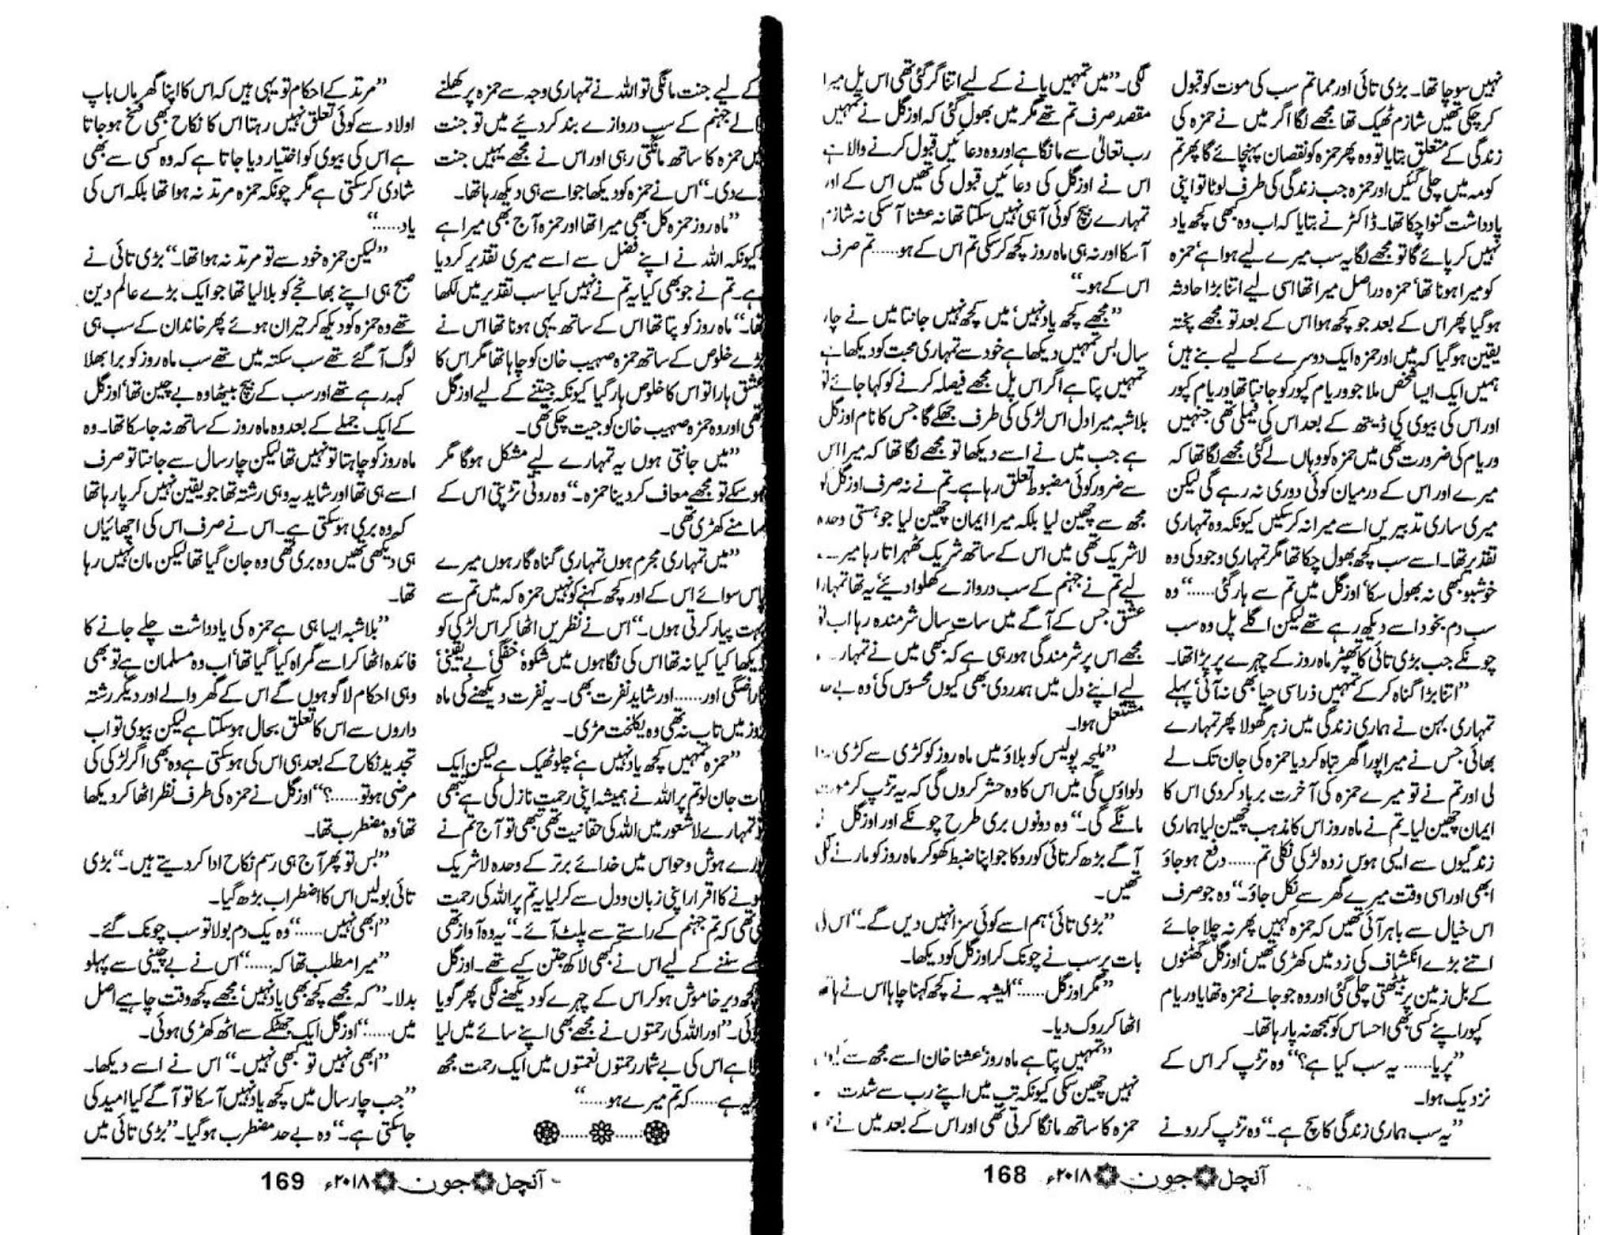 نہیں سوچا تھا۔ بڑی تائی اور مما تم سب کی موت کو قبول
کر چکی تھیں شازم ٹھیک تھا مجھے لگا اگر میں نے حمزہ کی
زندگی کے متعلق بتایا تو وہ پھر حمزہ کو نقصان پہنچائے گا پھر تم
کومہ میں چلی گئیں اور حمزہ جب زندگی کی طرف لوٹا تو اپنی
یادداشت گنوا چکا تھا۔ ڈاکٹر نے بتایا کہ اب وہ کبھی کچھ یاد
نہیں کر پائے گا تو مجھے لگا یہ سب میرے لیے ہوا ہے حمزہ
کو میرا ہونا تھا‘ حمزہ دراصل میرا تھا اسی لیے اتنا بڑا حادثہ
ہوگیا پھر اس کے بعد جو کچھ ہوا اس کے بعد تو مجھے پختہ
یقین ہوگیا کہ میں اور حمزہ ایک دوسرے کے لیے بنے ہیں‘
ہمیں ایک ایسا شخص ملا جو وریام کپور کو جانتا تھا وریام کپور
اور اس کی بیوی کی ڈیتھ کے بعد اس کی فیملی تھی جنہیں
وریام کی ضرورت تھی میں حمزہ کو وہاں لے گئی مجھے لگا تھا کہ
میرے اور اس کے درمیان کوئی دوری نہ رہے گی لیکن
میری ساری تدبیریں اسے میرا نہ کر سکیں کیونکہ وہ تمہاری
تقدیر تھا۔ اسے سب کچھ بھول چکا تھا مگر تمہاری وجود کی وہ
خوشبو کبھی نہ بھول سکا‘ اوزگل میں تم سے ہار گئی......“ وہ
سب دم بخود اسے دیکھ رہے تھے لیکن اگلے پل وہ سب
چونکے جب بڑی تائی کا تھپڑ ماہ روز کے چہرے پر پڑا تھا۔
”اتنا بڑا گناہ کر کے تمہیں ذرا سی حیا بھی نہ آئی‘ پہلے
تمہاری بہن نے ہماری زندگی میں زہر گھولا پھر تمہارے
بھائی جس نے میرا پورا گھر تباہ کر دیا حمزہ کی جان تک لے
لی اور تم نے تو میرے حمزہ کی آخرت برباد کر دی اس کا
ایمان چھین لیا۔ تم نے ماہ روز اس کا مذہب چھین لیا ہماری
زندگیوں سے ایسی ہوس زدہ لڑکی نکلی تم...... دفع ہو جاؤ
ابھی اور اسی وقت میرے گھر سے نکل جاؤ۔“ وہ جو صرف
اس خیال سے باہر آئی تھیں کہ حمزہ کہیں پھر نہ چلا جائے
اتنے بڑے انکشاف کی زد میں کھڑی تھیں‘ اوزگل گھٹنوں
کے بل زمین پر بیٹھتی چلی گئی اور وہ جو جانے حمزہ تھا یا وریام
کپور اپنے کسی بھی احساس کو سمجھ نہ پا رہا تھا۔
”پریا...... یہ سب کیا ہے؟“ وہ تڑپ کر اس کے
نزدیک ہوا۔
”یہ سب ہماری زندگی کا سچ ہے۔“ وہ تڑپ کر رونے
لگی۔ ”میں تمہیں پانے کے لیے اتنا گر گئی تھی اس پل میرا
مقصد صرف تم تھے مگر میں بھول گئی کہ اوزگل نے تمہیں
رب تعالیٰ سے مانگا ہے اور وہ دعائیں قبول کرنے والا ہے
اس نے اوزگل کی دعائیں قبول کی تھیں اس کے اور
تمہارے بیچ کوئی آ ہی نہیں سکتا تھا نہ عشنا آ سکی نہ شازم
آ سکا اور نہ ہی ماہ روز کچھ کر سکی تم اس کے ہو...... تم صرف
اس کے ہو۔“
”مجھے کچھ یاد نہیں‘ میں کچھ نہیں جانتا میں نے چار
سال بس تمہیں دیکھا ہے خود سے تمہاری محبت کو دیکھا ہے
تمہیں پتا ہے اگر اس پل مجھے فیصلہ کرنے کو کہا جائے تو
بلاشبہ میرا دل اس لڑکی کی طرف جھکے گا جس کا نام اوزگل
ہے جب میں نے اسے دیکھا تو مجھے لگا تھا کہ میرا اس
سے ضرور کوئی مضبوط تعلق رہا ہے۔ تم نے نہ صرف اوزگل کو
مجھ سے چھین لیا بلکہ میرا ایمان چھین لیا جو ہستی وحدہ
لاشریک تھی میں اس کے ساتھ شریک ٹھہراتا رہا میر
لیے تم نے جہنم کے سب دروازے کھلوا دیئے یہ تھا تمہارا
عشق جس کے آگے میں سات سال شرمندہ رہا اب تو
مجھے اس پر شرمندگی ہو رہی ہے کہ کبھی میں نے تمہار
لیے اپنے دل میں ہمدردی بھی کیوں محسوس کی‘ وہ بے حد
مشتعل ہوا۔
”ملیحہ پولیس کو بلاؤ میں ماہ روز کو کڑی سے کڑی سزا
دلواؤں گی میں اس کا وہ حشر کروں گی کہ یہ تڑپ کر موت
مانگے گی۔“ وہ دونوں بری طرح چونکے اور اوزگل
آگے بڑھ کر تائی کو روکا جو اپنا ضبط کھو کر ماہ روز کو مارنے لگی
تھیں۔
”بڑی تائی‘ ہم اسے کوئی سزا نہیں دیں گے۔“ اس کی
بات پر سب نے چونک کر اوزگل کو دیکھا۔
”مگر اوزگل......“ الیشبہ نے کچھ کہنا چاہا اس نے ہاتھ
اٹھا کر روک دیا۔
”تمہیں پتا ہے ماہ روز‘ عشنا خان اسے مجھ سے
نہیں چھین سکی کیونکہ تب میں اپنے رب سے شدت
حمزہ کا ساتھ مانگا کرتی تھی اور اس کے بعد میں نے
آنچل جون ۲۰۱۸ء 168
کے لیے جنت مانگی تو اللہ نے تمہاری وجہ سے حمزہ پر کھلنے
الے جہنم کے سب دروازے بند کر دیئے میں تو جنت
میں حمزہ کا ساتھ مانگتی رہی اور اس نے مجھے یہیں جنت
ے دی۔“ اس نے حمزہ کو دیکھا جو اسے ہی دیکھ رہا تھا۔
”ماہ روز حمزہ کل بھی میرا تھا اور حمزہ آج بھی میرا ہے
کیونکہ اللہ نے اپنے فضل سے اسے میری تقدیر کر دیا
ہے۔ تم نے جو بھی کیا یہ تم نے نہیں کیا سب تقدیر میں لکھا
تھا۔“ ماہ روز کو پتا تھا اس کے ساتھ یہی ہونا تھا اس نے
بڑے خلوص کے ساتھ حمزہ صہیب خان کو چاہا تھا مگر اس کا
عشق ہارا تو اس کا خلوص ہار گیا کیونکہ جیتنے کے لیے اوزگل
تھی اور وہ حمزہ صہیب خان کو جیت چکی تھی۔
”میں جانتی ہوں یہ تمہارے لیے مشکل ہوگا مگر
ہو سکے تو مجھے معاف کر دینا حمزہ۔“ وہ روتی تڑپتی اس کے
سامنے کھڑی تھی۔
”میں تمہاری مجرم ہوں تمہاری گناہ گار ہوں میرے
پاس سوائے اس کے اور کچھ کہنے کو نہیں حمزہ کہ میں تم سے
بہت پیار کرتی ہوں۔“ اس نے نظریں اٹھا کر اس لڑکی کو
دیکھا کیا کیا نہ تھا اس کی نگاہوں میں شکوہ‘ خفگی‘ بے یقینی‘
ناراضگی اور...... اور شاید نفرت بھی۔ یہ نفرت دیکھنے کی ماہ
روز میں تاب نہ تھی وہ یکلخت مڑی۔
”حمزہ تمہیں کچھ یاد نہیں ہے‘ چلو ٹھیک ہے لیکن ایک
بات جان لو تم پر اللہ نے ہمیشہ اپنی رحمت نازل کی ہے تبھی
تو تمہارے لاشعور میں اللہ کی حقانیت تھی تبھی تو آج تم نے
پورے ہوش و حواس میں خدائے برتر کے وحدہ لاشریک
ہونے کا اقرار اپنی زبان و دل سے کر لیا یہ تم پر اللہ کی رحمت
ہی تھی کہ تم جہنم کے راستے سے پلٹ آئے۔“ یہ وہ آواز تھی
جسے سننے کے لیے اس نے کبھی لاکھ جتن کیے تھے۔ اوزگل
کچھ دیر خاموش ہو کر اس کے چہرے کو دیکھنے لگی پھر گویا
ہوئی۔ ”اور اللہ کی رحمتوں نے مجھے بھی اپنے سائے میں لیا
ہے اس کی بے شمار رحمتوں نعمتوں میں ایک رحمت مجھ
پر یہ ہے...... کہ تم میرے ہو......“
”مرتد کے احکام تو یہی ہیں کہ اس کا اپنا گھر ماں باپ
اولاد سے کوئی تعلق نہیں رہتا اس کا نکاح بھی فسخ ہو جاتا
ہے اس کی بیوی کو اختیار دیا جاتا ہے کہ وہ کسی سے بھی
شادی کر سکتی ہے مگر چونکہ حمزہ مرتد نہ ہوا تھا بلکہ اس کی
یاد......“
”لیکن حمزہ خود سے تو مرتد نہ ہوا تھا۔“ بڑی تائی نے
صبح ہی اپنے بھانجے کو بلا لیا تھا جو ایک بڑے عالم دین
تھے وہ حمزہ کو دیکھ کر حیران ہوئے پھر خاندان کے سب ہی
لوگ آ گئے تھے سب سکتہ میں تھے سب ماہ روز کو برا بھلا
کہہ رہے تھے اور سب کے بیچ بیٹھا وہ بے چین تھا‘ اوزگل
کے ایک جملے کے بعد وہ ماہ روز کے ساتھ نہ جا سکا تھا۔ وہ
ماہ روز کو چاہتا تو نہیں تھا لیکن چار سال سے جانتا تو صرف
اسے ہی تھا اور شاید یہ وہی رشتہ تھا جو یقین نہیں کر پا رہا تھا
کہ وہ بری ہو سکتی ہے۔ اس نے صرف اس کی اچھائیاں
ہی دیکھی تھیں وہ بری تھی وہ جان گیا تھا لیکن مان نہیں رہا
تھا۔
”بلاشبہ ایسا ہی ہے حمزہ کی یادداشت چلے جانے کا
فائدہ اٹھا کر اسے گمراہ کیا گیا تھا‘ اب وہ مسلمان ہے تو بھی
وہی احکام لاگو ہوں گے اس کے گھر والے اور دیگر رشتہ
داروں سے اس کا تعلق بحال ہو سکتا ہے لیکن بیوی تو اب
تجدید نکاح کے بعد ہی اس کی ہو سکتی ہے وہ بھی اگر لڑکی کی
مرضی ہو تو......؟“ اوزگل نے حمزہ کی طرف نظر اٹھا کر دیکھا
تھا‘ وہ مضطرب تھا۔
”بس تو پھر آج ہی رسم نکاح ادا کر دیتے ہیں۔“ بڑی
تائی بولیں اس کا اضطراب بڑھ گیا۔
”ابھی نہیں......“ وہ یک دم بولا تو سب چونک گئے۔
”میرا مطلب تھا کہ......“ اس نے بے چینی سے پہلو
بدلا۔ ”کہ مجھے کچھ بھی یاد نہیں‘ مجھے کچھ وقت چاہیے اصل
میں......“ اوزگل ایک جھٹکے سے اٹھ کھڑی ہوئی۔
”ابھی نہیں تو کبھی نہیں۔“ اس نے اسے دیکھا۔
”جب چار سال میں کچھ یاد نہیں آ سکا تو آگے کیا امید کی
جا سکتی ہے۔“ وہ بے حد مضطرب ہوگیا۔ ”بڑی تائی میں
آنچل جون ۲۰۱۸ء 169